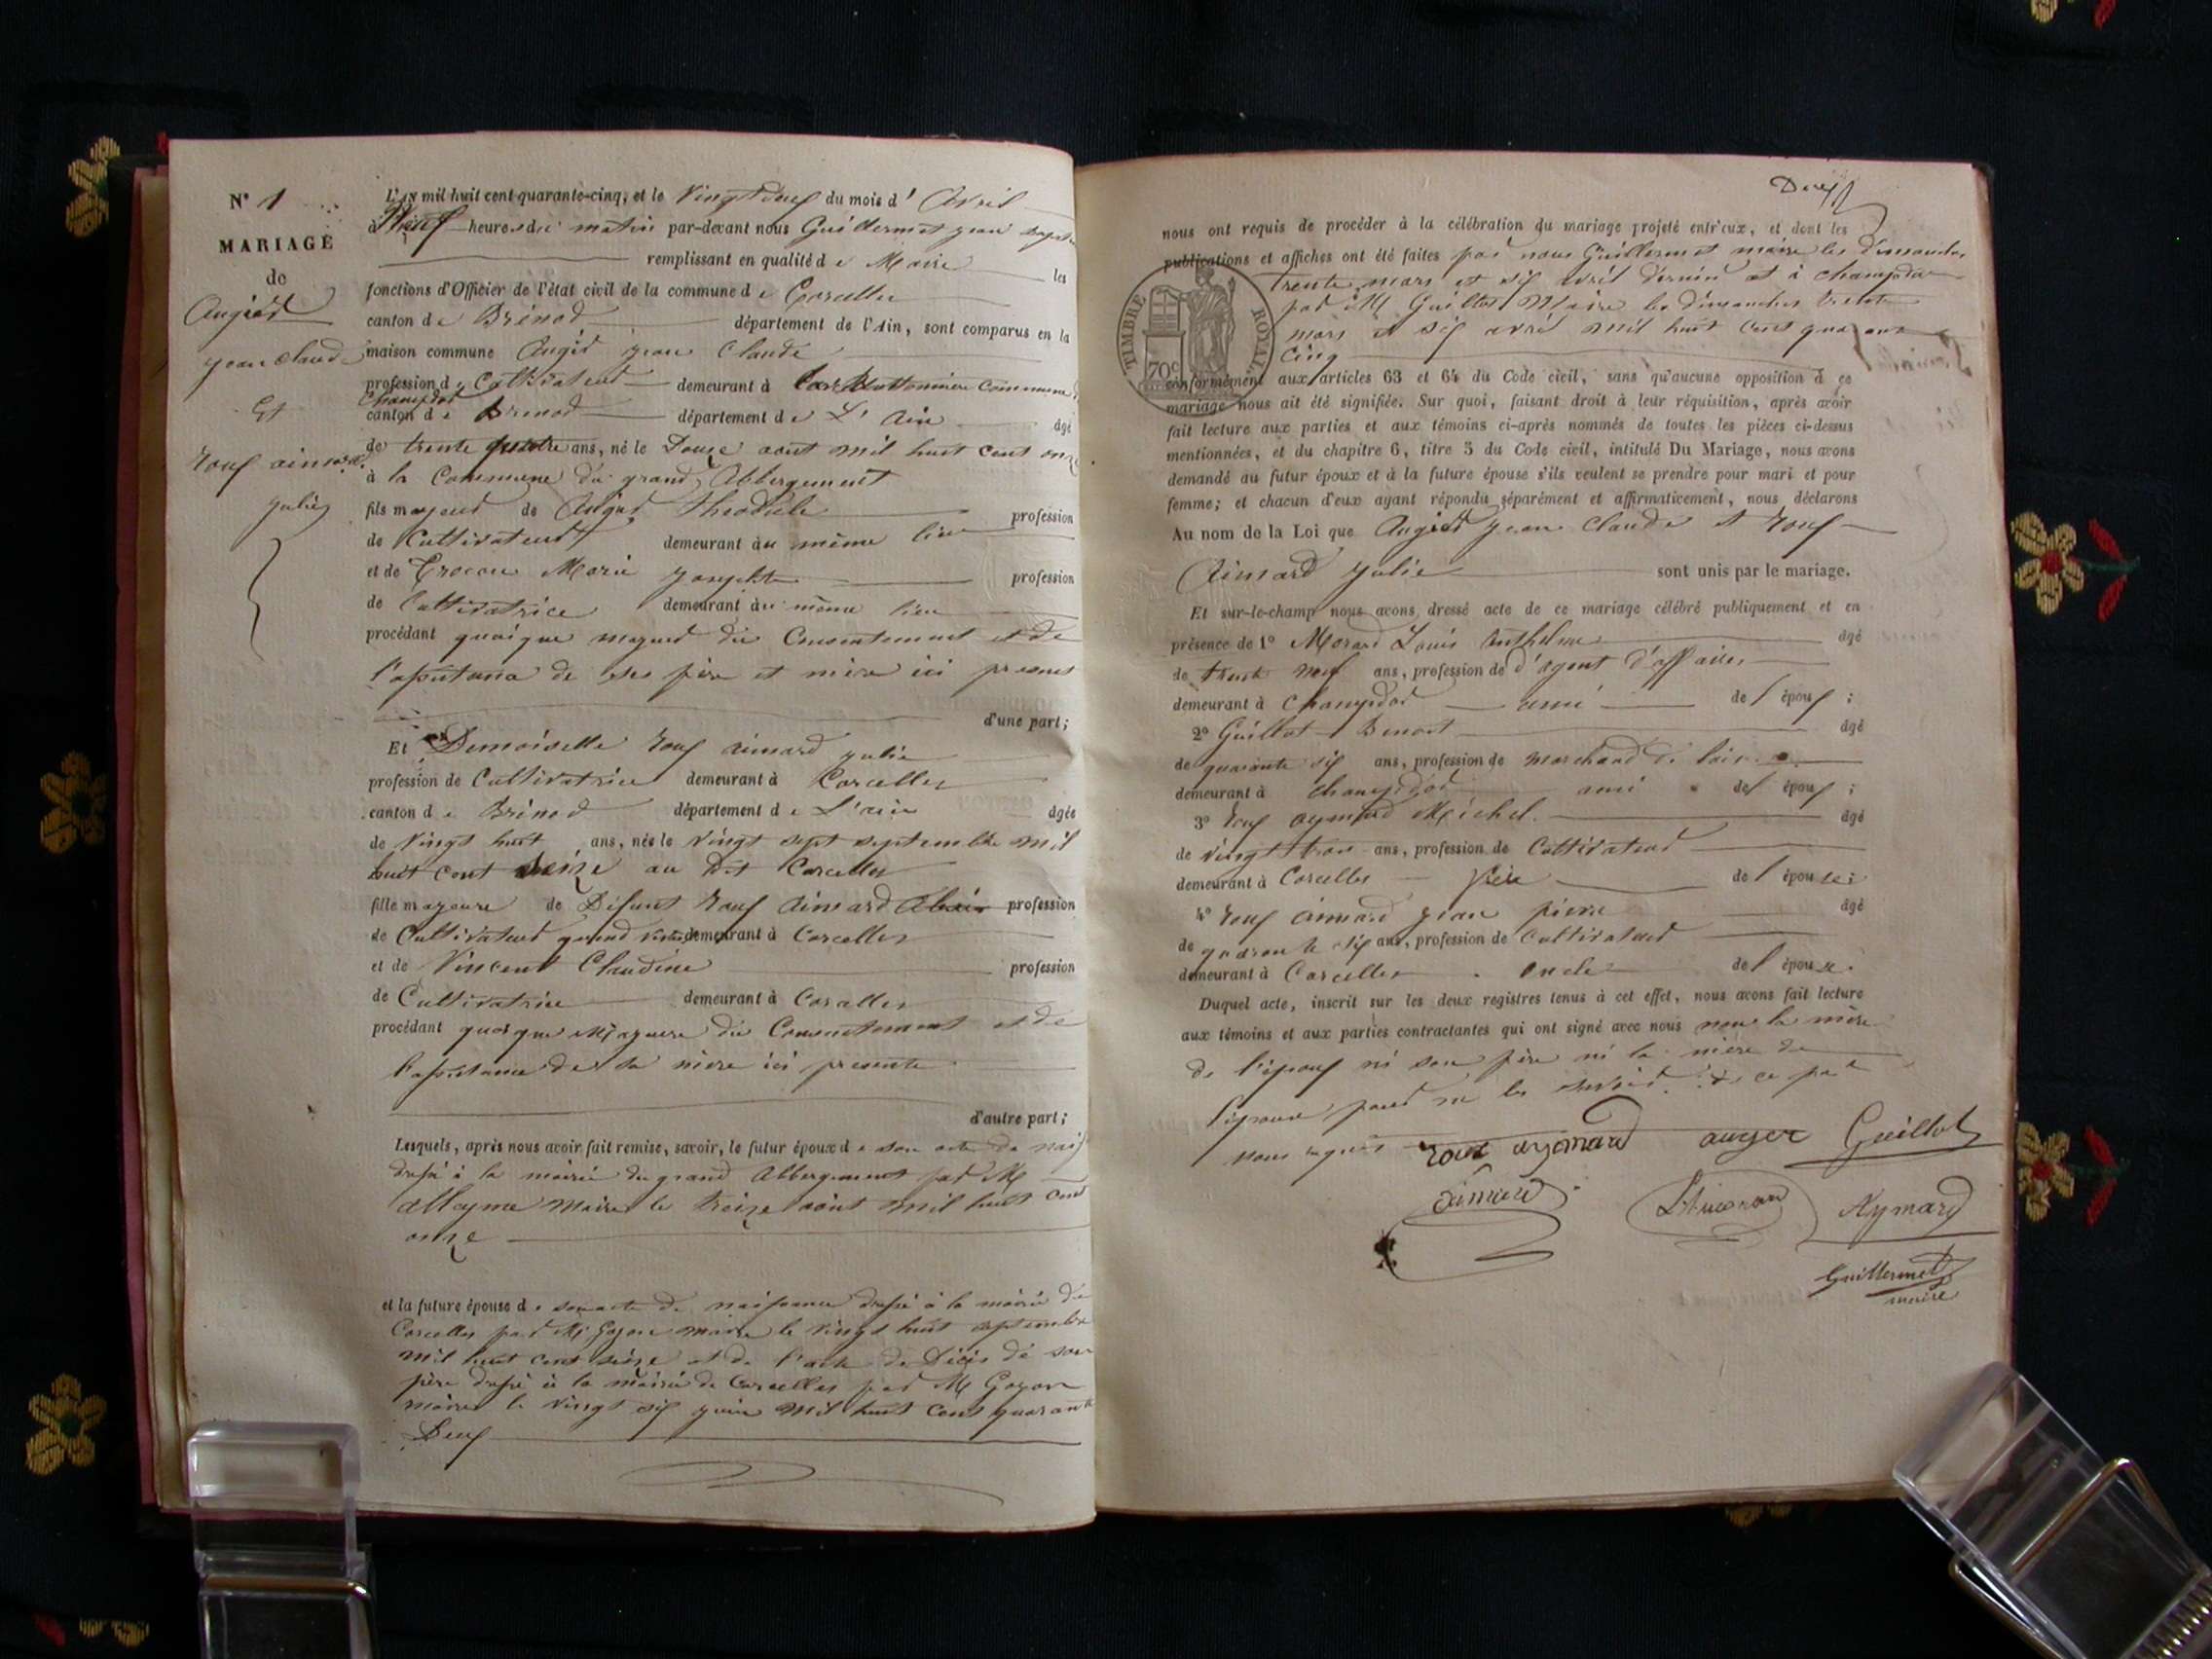 N° 1
MARIAGE
de
Augier
jean claude
Et
roux aimard
julie
L'An mil huit cent quarante-cinq, et le vingt deux du mois d' avril
à neuf heures du matin par-devant nous Guillermet jean
remplissant en qualité de Maire les
fonctions d'Officier de l'état civil de la commune de Corcelles
canton de Brénod département de l'Ain, sont comparus en la
maison commune Augier jean Claude
profession de Cultivateur demeurant à commune
Champdor
canton de Brenod département de L' Ain âgé
de trente quatre ans, né le Douze aout mil huit cent onze
à la Commune du grand Abbergement
fils majeur de Augier theodule profession
de Cultivateur demeurant au même lieu
et de Marie josephte profession
de Cultivatrice demeurant au même lieu
procédant quoique majeur du Consentement et de
l'assistance de ses père et mère ici present
d'une part;
Et Demoiselle roux aimard julie
profession de Cultivatrice demeurant à Corcelles
canton de Brénod département de L'ain âgée
de vingt huit ans, née le vingt sept septembre mil
huit cent seize au dit Corcelles
fille majeure de Défunt roux aimard profession
de Cultivateur quand vivait demeurant à Corcelles
et de Vincent Claudine profession
de Cultivatrice demeurant à Corcelles
procédant quoique Majeure du Consentement et de
l'assistance de sa mère ici presente
d'autre part;
Lesquels, après nous avoir fait remise, savoir, le futur époux de son acte de nais
dréssé à la mairie du grand Abbergement par M
allayme Maire le treize aout mil huit cent
onze
et la future épouse de son acte de naissance dressé à la mairie de
Corcelles par M Goyon maire le vingt huit septembre
mil huit cent seize et de l'acte de Décès de son
père dréssé à la mairie de Corcelles par M Goyon
maire le vingt six juin mil huit cent quarante
Deux
Deux
nous ont requis de procéder à la célébration du mariage projeté entr'eux, et dont les
publications et affiches ont été faites par nous Guillermet maire les dimanches
trente mars et six avril dernier et à champdor
par M Guillot Maire les dimanches trente
mars et six avril mil huit cent quarante
cinq
TIMBRE ROYAL
70c
conformément aux articles 63 et 64 du Code civil, sans qu'aucune opposition à ce
mariage nous ait été signifiée. Sur quoi, faisant droit à leur réquisition, après avoir
fait lecture aux parties et aux témoins ci-après nommés de toutes les pièces ci-dessus
mentionnées, et du chapitre 6, titre 5 du Code civil, intitulé Du Mariage, nous avons
demandé au futur époux et à la future épouse s'ils veulent se prendre pour mari et pour
femme; et chacun d'eux ayant répondu séparément et affirmativement, nous déclarons
Au nom de la Loi que Augier jean claude et roux
Aimard julie sont unis par le mariage.
Et sur-le-champ nous avons dressé acte de ce mariage célébré publiquement et en
présence de 1° Morand Louis Anthelme âgé
de trente neuf ans, profession de d'agent d'affaires
demeurant à Champdor ami de l époux;
2° Guillot Benoit âgé
de quarante six ans, profession de marchand de bois
demeurant à champdor ami de l époux;
3° roux aymard Michel âgé
de vingt trois ans, profession de Cultivateur
demeurant à Corcelles frère de l épouse;
4° roux aimard jean pierre âgé
de quarante six ans, profession de Cultivateur
demeurant à Corcelles oncle de l épouse.
Duquel acte, inscrit sur les deux registres tenus à cet effet, nous avons fait lecture
aux témoins et aux parties contractantes qui ont signé avec nous non la mère
de l'époux ni son père ni la mère de
l'épouse pour ne les savoir de ce par
nous requis
roux aymard auger Guillot
aimard Aymard
Guillermet
maire